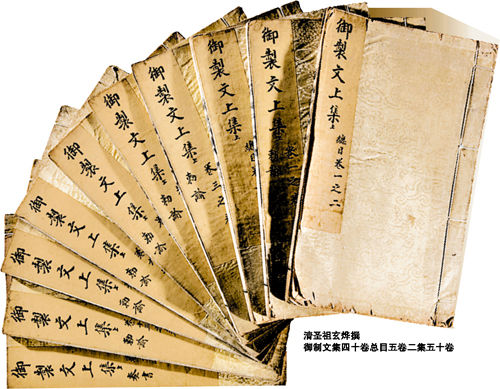 御製文上集 總目卷一之二
御製文上集
御製文上集 總目
御製文上集 勅諭
御製文上集 勅諭
御製文上集 勅諭
御製文上集 勅諭
御製文上集 勅諭
御製文上集 勅諭
御製文上集 奏書
清圣祖玄烨撰
御制文集四十卷总目五卷二集五十卷